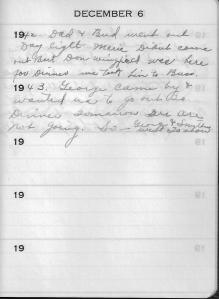 DECEMBER 6
1942. Dad & Bud went out
Day light. Marie Didnt come
out But Don Wingfied was here
for Dinner we took him to Buss.
1943. George came by &
wanted us to go out to
Dinner tomorrow We are
not going. So - George &
went to show
19
19
19